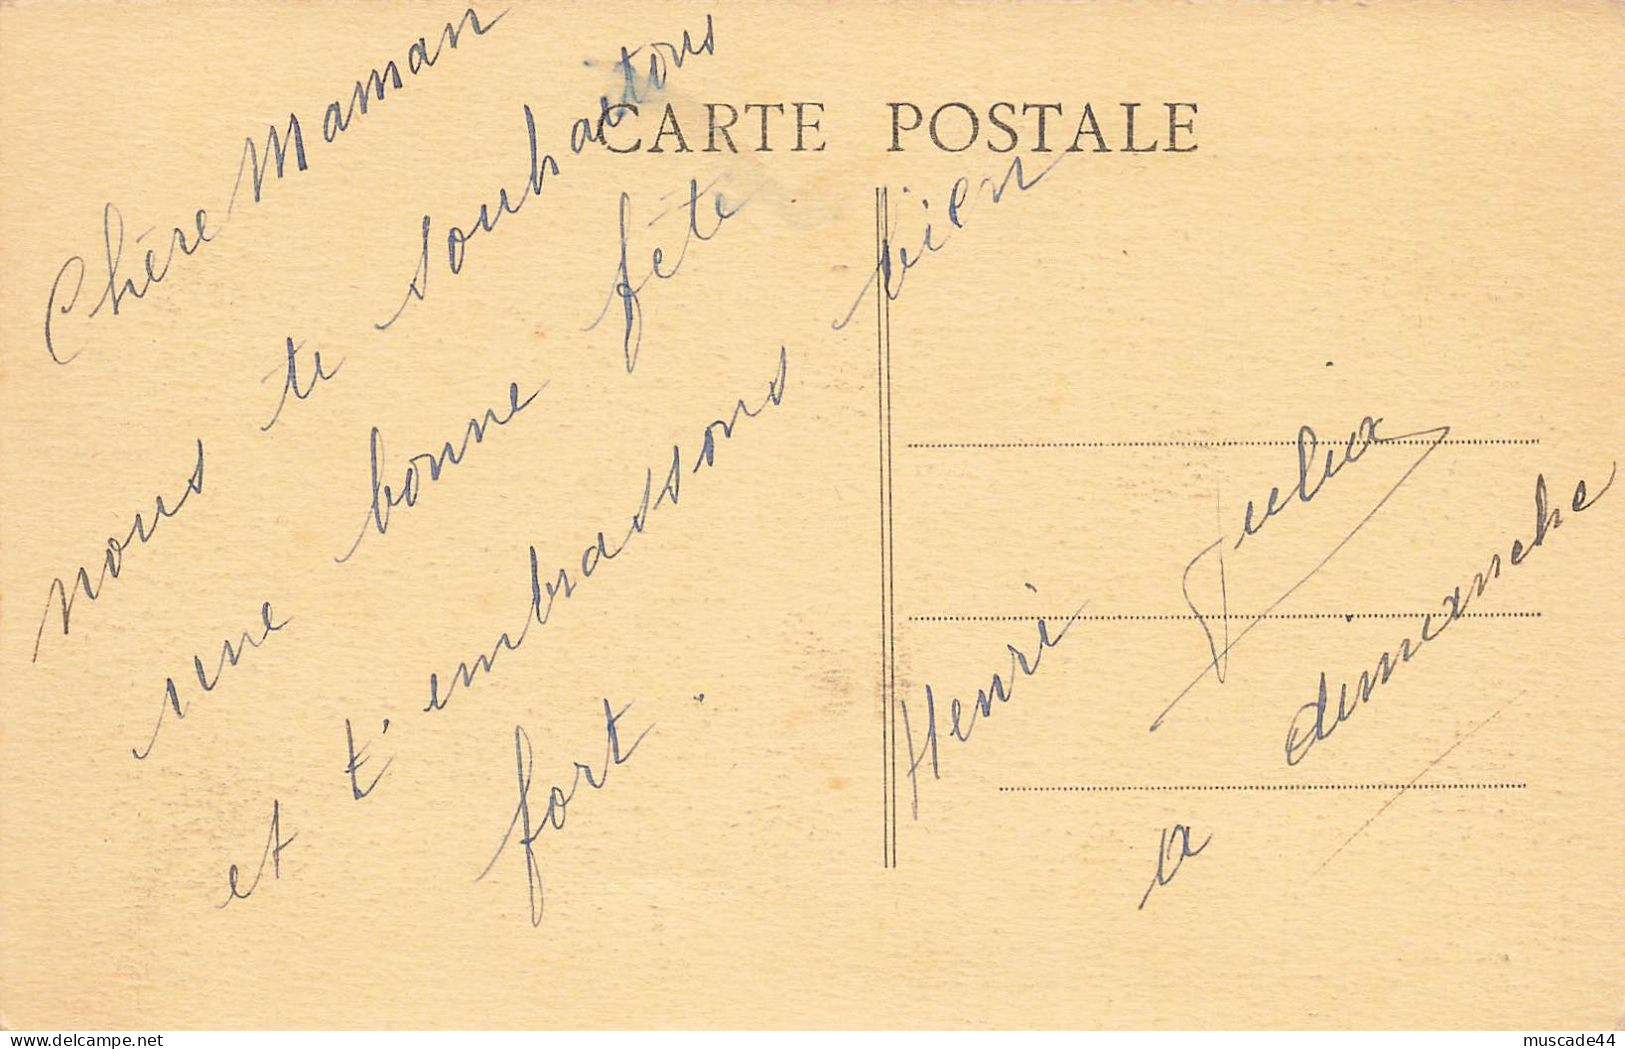 CARTE POSTALE
Chère Maman
nous te souhaitons
une bonne fête
et t'embrassons bien
fort.
Henri Julia
a dimanche
www.delcampe.net
muscade44